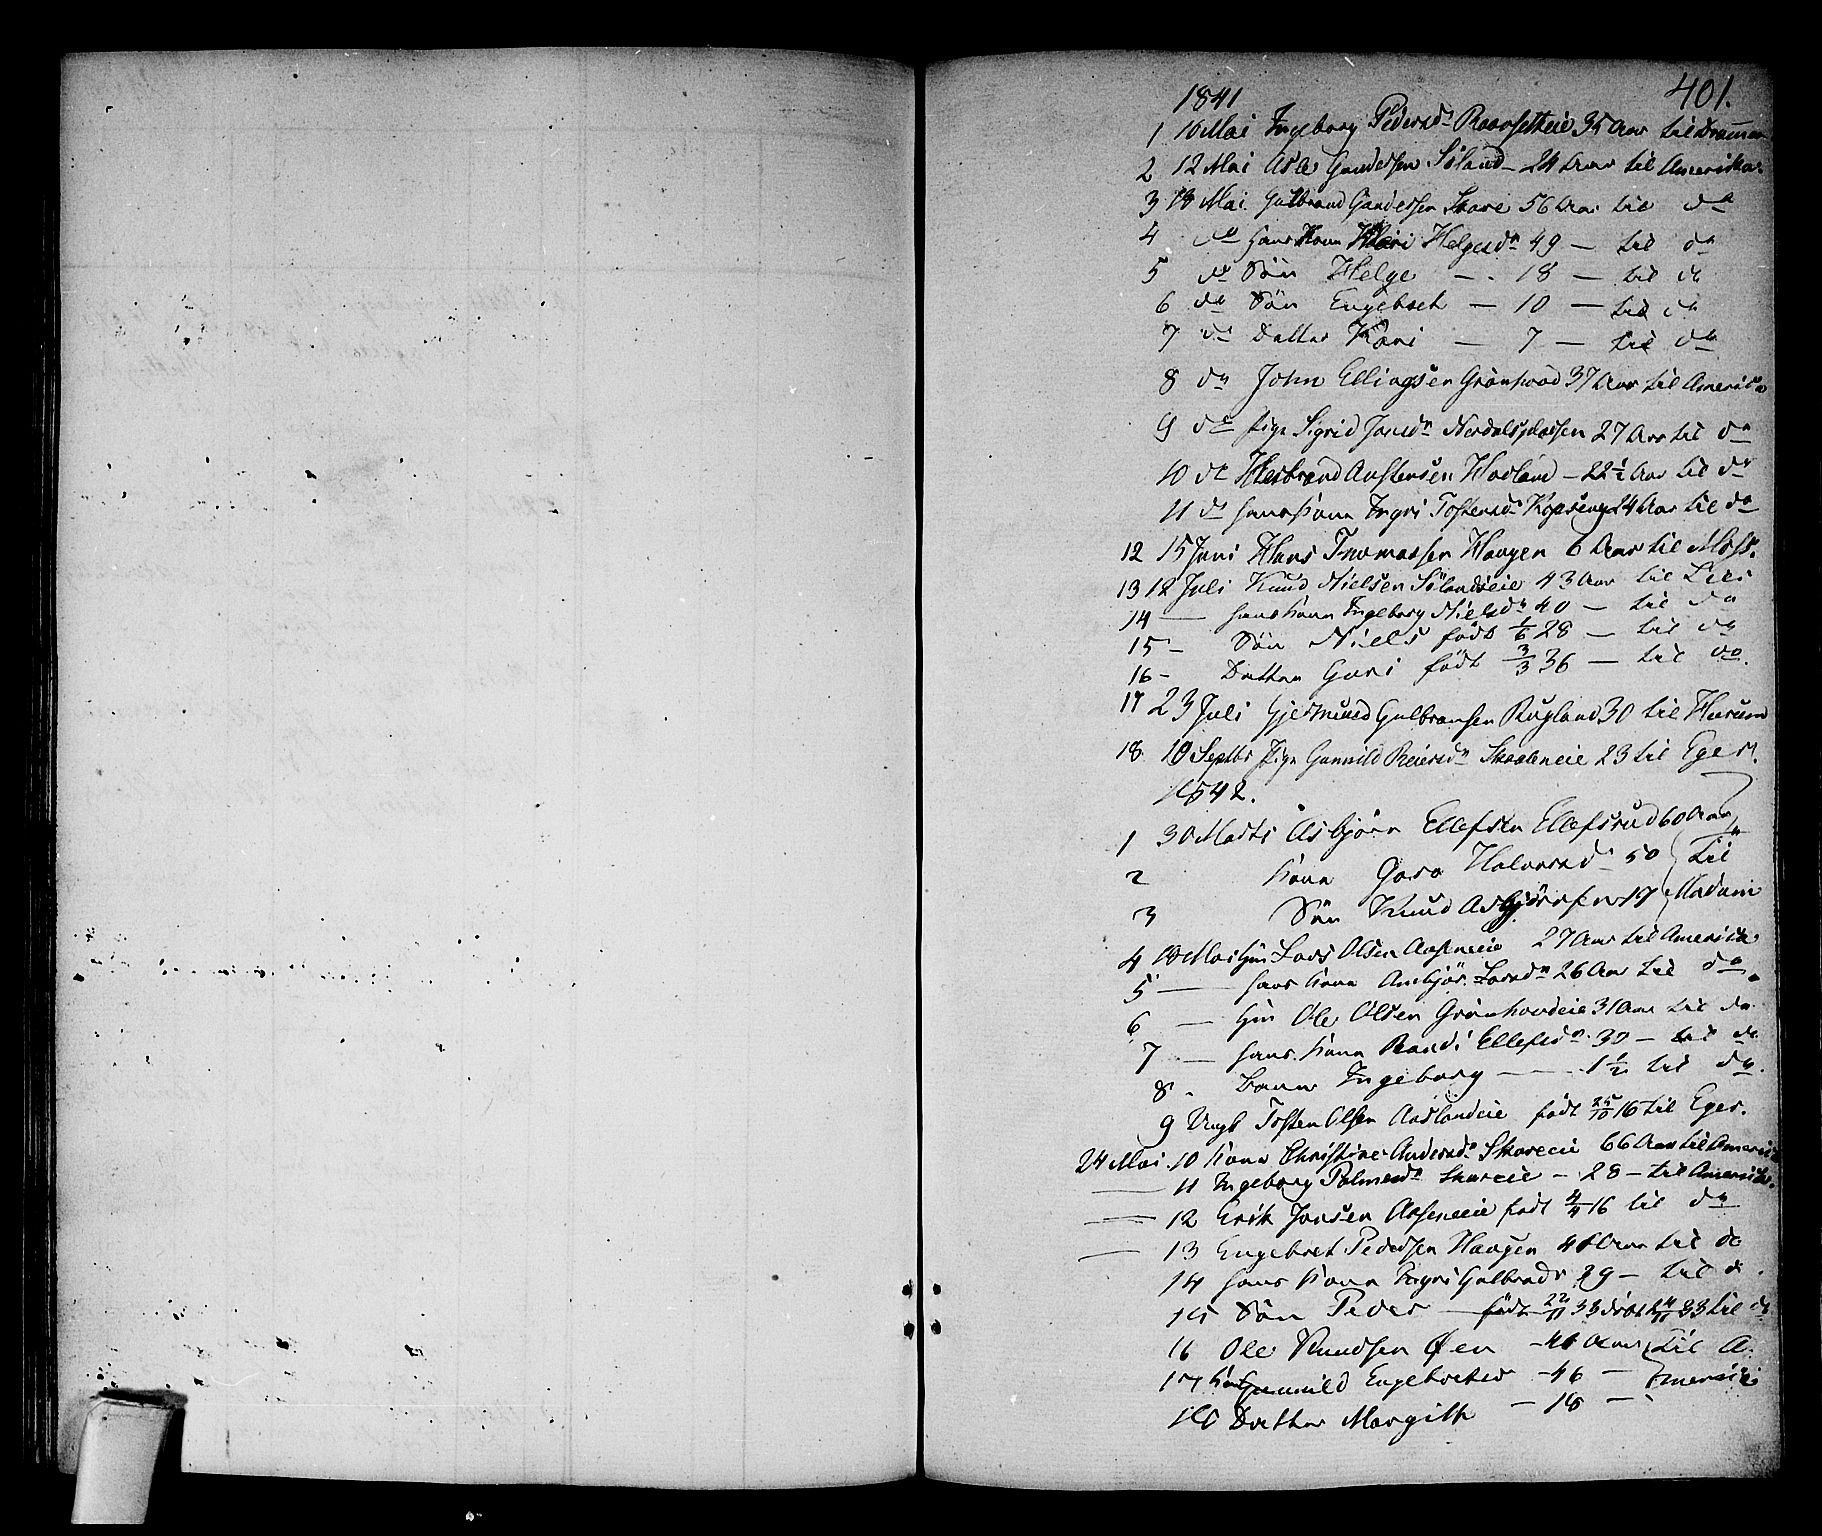 401.
1841
1 10 Mai Ingeborg Pedersd. Roarsetteie 35 Aar til Drammen
2 12 Mai Asle Gundersen Söland - 24 Aar til Amerika.
3 18 Mai. Gulbrand Gundersen Skare 56 Aar til do
4 do hans Kone Kari Helgesd. 49 - til do
5 do Sön Helge - . 18 - til do
6 do Sön Engebret - 10 - til do
7 do Datter Kari - 7 - til do
8 do John Ellingsen Grönhovd 37 Aar til Amerika
9 do Pige Sigrid Jonsd. Nerdalsplassen 27 Aar til do
10 do Herbrand Anstensen Hovland - 22 1/2 Aar til do
11 do hans Kone Ingri Tostensd. Kopseng 24 Aar til do
12 15 Juni Hans Thomassen Haugen 6 Aar til Moss.
13 12 Juli Knud Nielsen Sölandseie 43 Aar til Lier
14 — hans Kone Ingeborg Nielsd. 40 - til do
15 - Sön Niels födt 1/6 28 - til do
16 - Datter Guri födt 3/3 36 - til do.
17 23 Juli Gjermund Gulbransen Rugland 30 til Hurum
18. 10 Septbr Pige Gunnild Reiersd. Skaaleneie 23 til Eger.
1842.
1 30 Marts Asbjörn Ellefsen Ellefsrud 60 Aar
2 Kone Goro Halvorsd. 50 til
3 Sön Knud Asbjörnsen 17 Modum
4 18 Mai Gm Lars Olsen Aaseneie 27 Aar til Amerika
5 — hans Kone Anbjör Larsd. 26 Aar til do.
6 — Gm Ole Olsen Grönhovdeie 31 Aar til do
7 — hans Kone Randi Ellefsd. 30 - til do
8 . Barn Ingeborg — 1 1/2 til do.
9 Ungk Tosten Olsen Aaslandeie födt 25/10 16 til Eger.
24 Mai. 10 Kone Christine Andersd. Skareeie 66 Aar til Amerika
— 11 Ingeborg Palmesd. Skareeie - 28 - til Amerika.
— 12 Erik Jonsen Aaseneeie födt 4/4 16 til do
— 13 Engebret Pedersen Haugen 41 Aar til do
14 hans Kone Ingri Gulbrandsd. 29 - til do.
15 Sön Peder - födt 22/11 33 til do
16 Ole Knudsen Øen - 46 Aar til A-
17 Kone Gunnild Engebretsd - 46 - merika
18 Datter Margith - 18 -